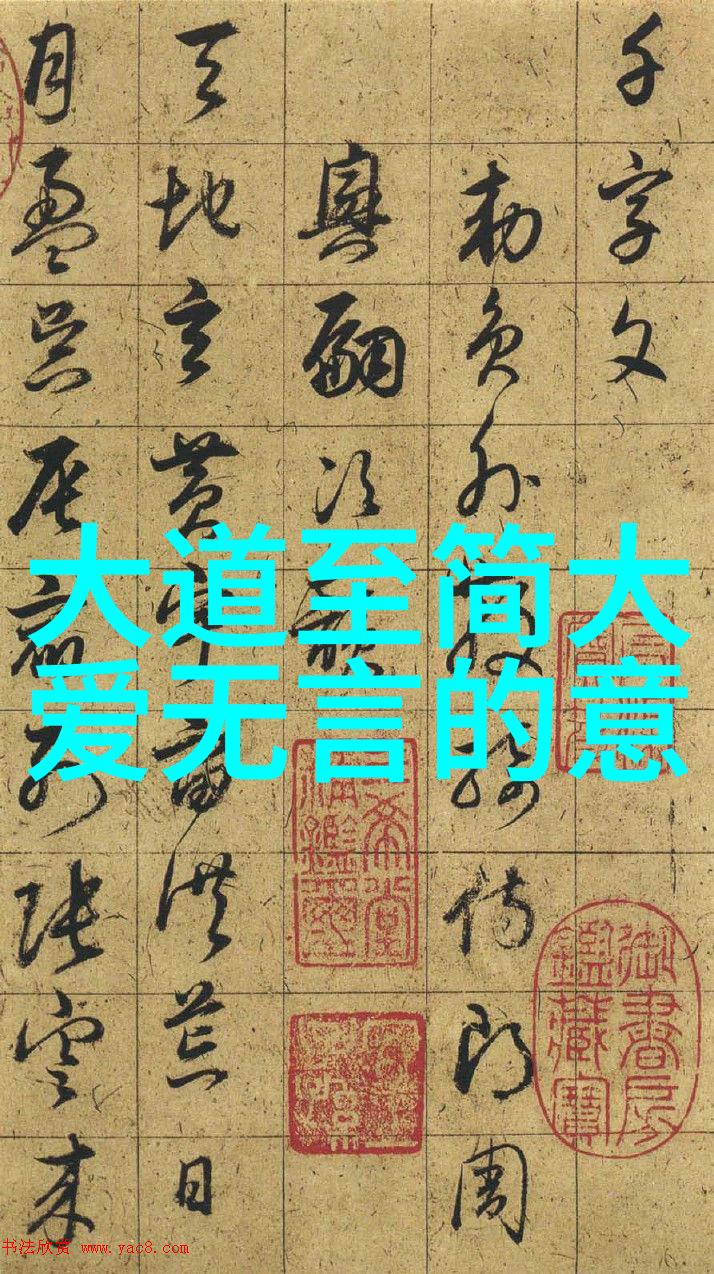 千字文
勅員外散騎侍郎周
興嗣次韻
天地玄黃宇宙洪荒日
月盈昃辰宿列張雲來
大道至简大
爱无言的意
三希堂
精鑑璽
御書房
鑑藏寶
书法欣赏 www.yac8.com